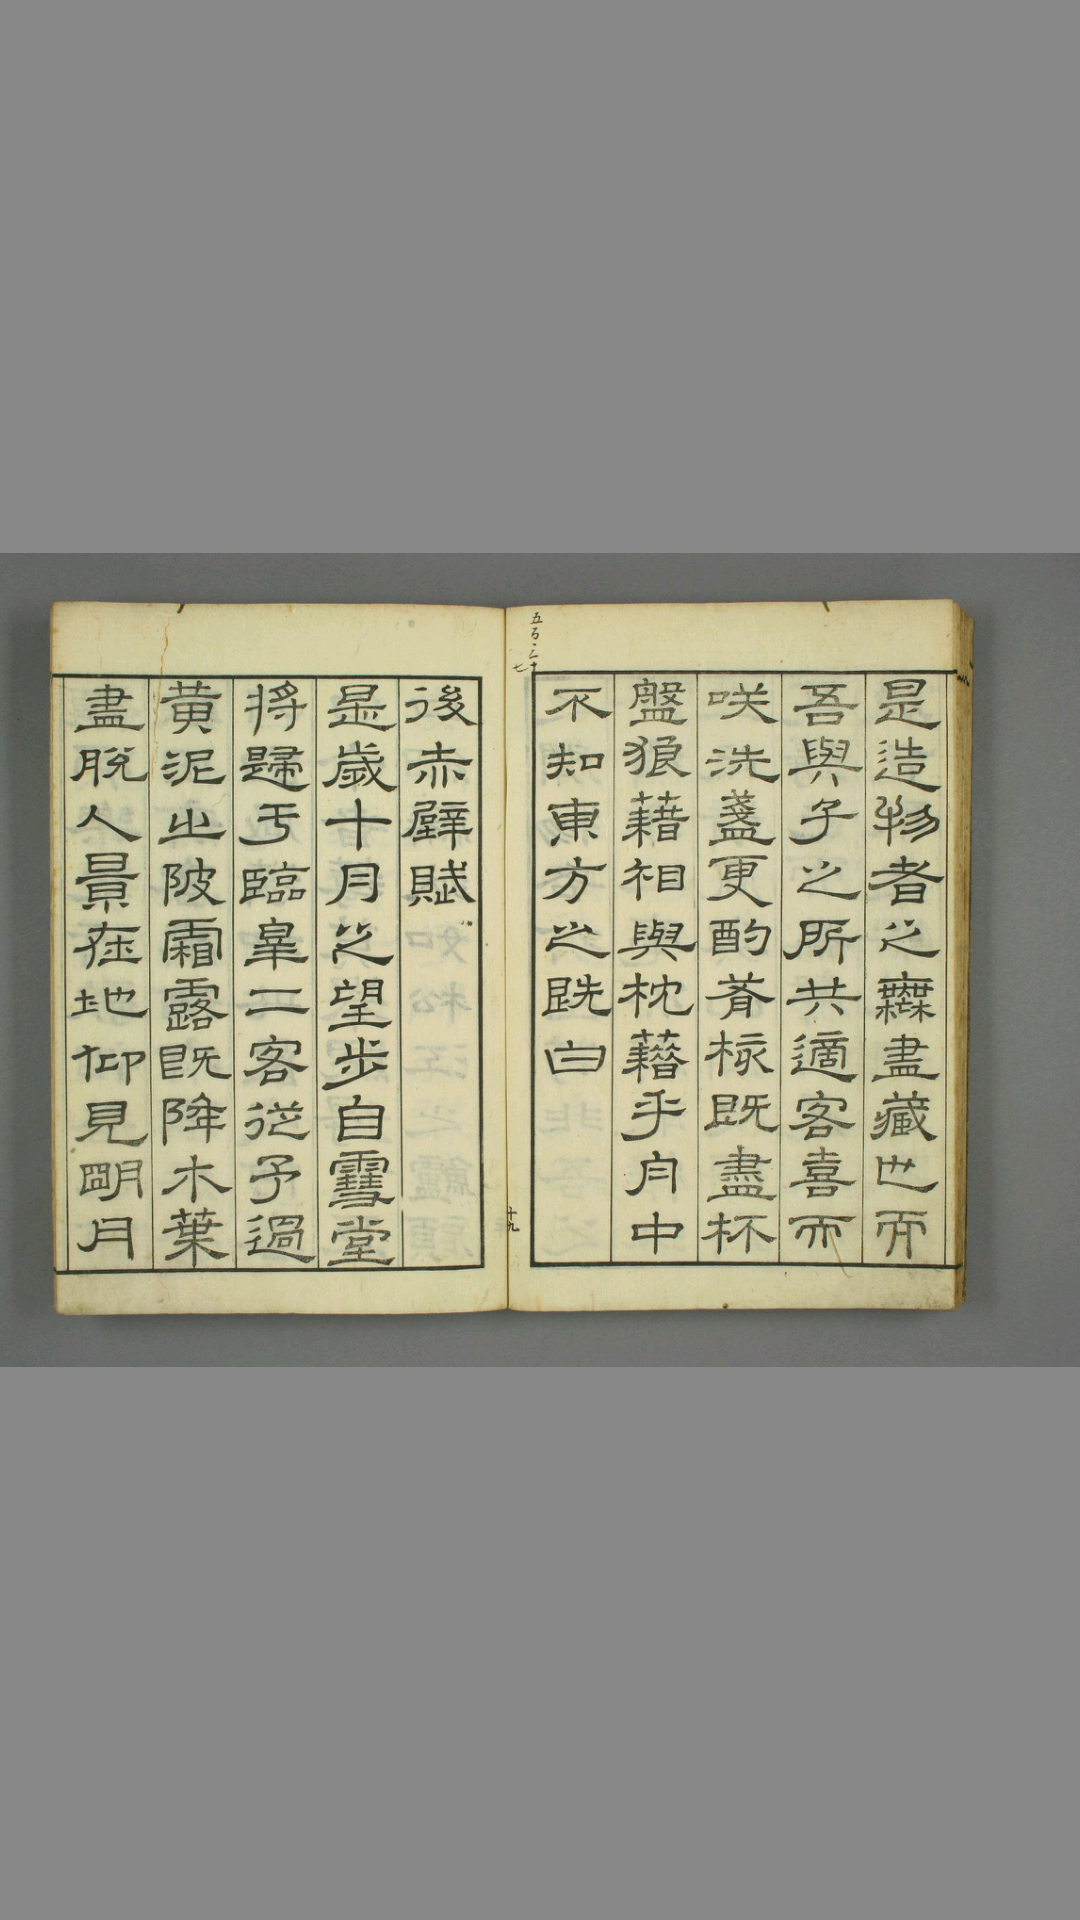 五百三十七
是造物者之無盡藏也而
吾與子之所共適客喜而
咲洗盞更酌肴核既盡杯
盤狼藉相與枕藉乎舟中
不知東方之既白
十九
後赤壁賦
是歲十月之望步自雪堂
將歸于臨皋二客從予過
黃泥之陂霜露既降木葉
盡脫人景在地仰見朙月